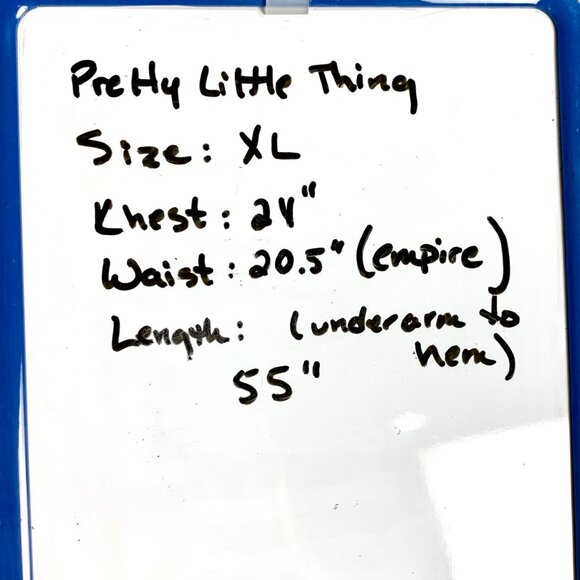 Pretty Little Thing
Size: XL
Chest: 24"
Waist: 20.5" (empire)
Length: (underarm to
hem)
55"